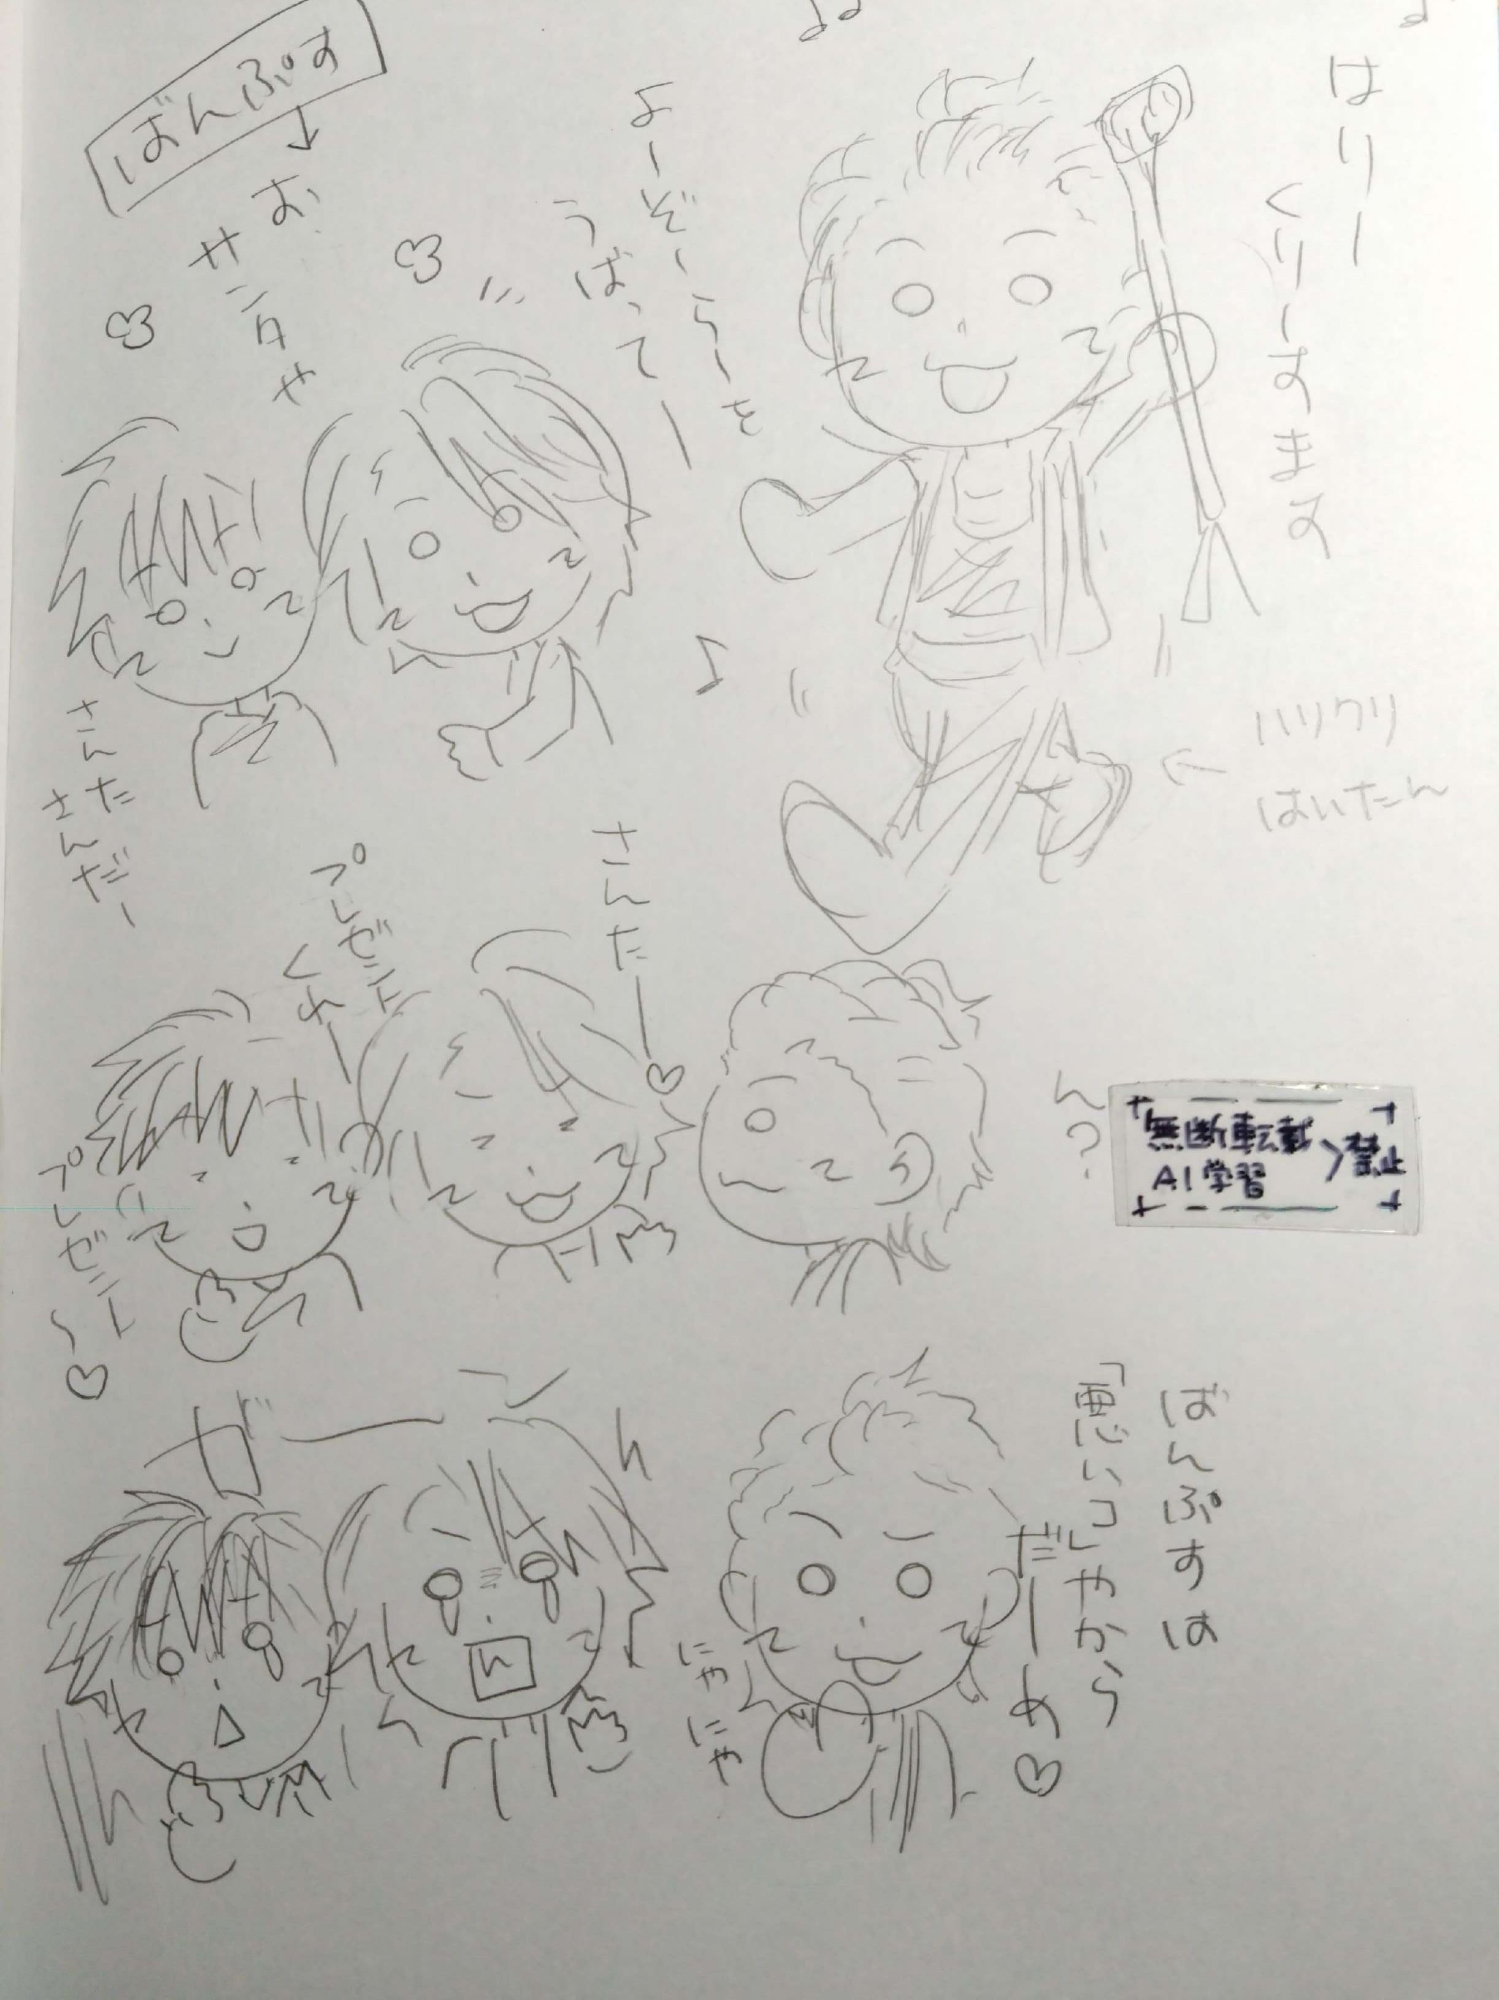 はりー
くりーすます
よーぞーらーを
うばってー
ばんぷす
お
サンタや
ハリクリ
はいたん
さんた
さんだー
さんたー♡
プレゼント
くれー
プレゼント〜♡
ん?
無断転載
AI学習
禁止
ばんぷすは
「悪いコ」やから
だーめ♡
にやにや
ガーン